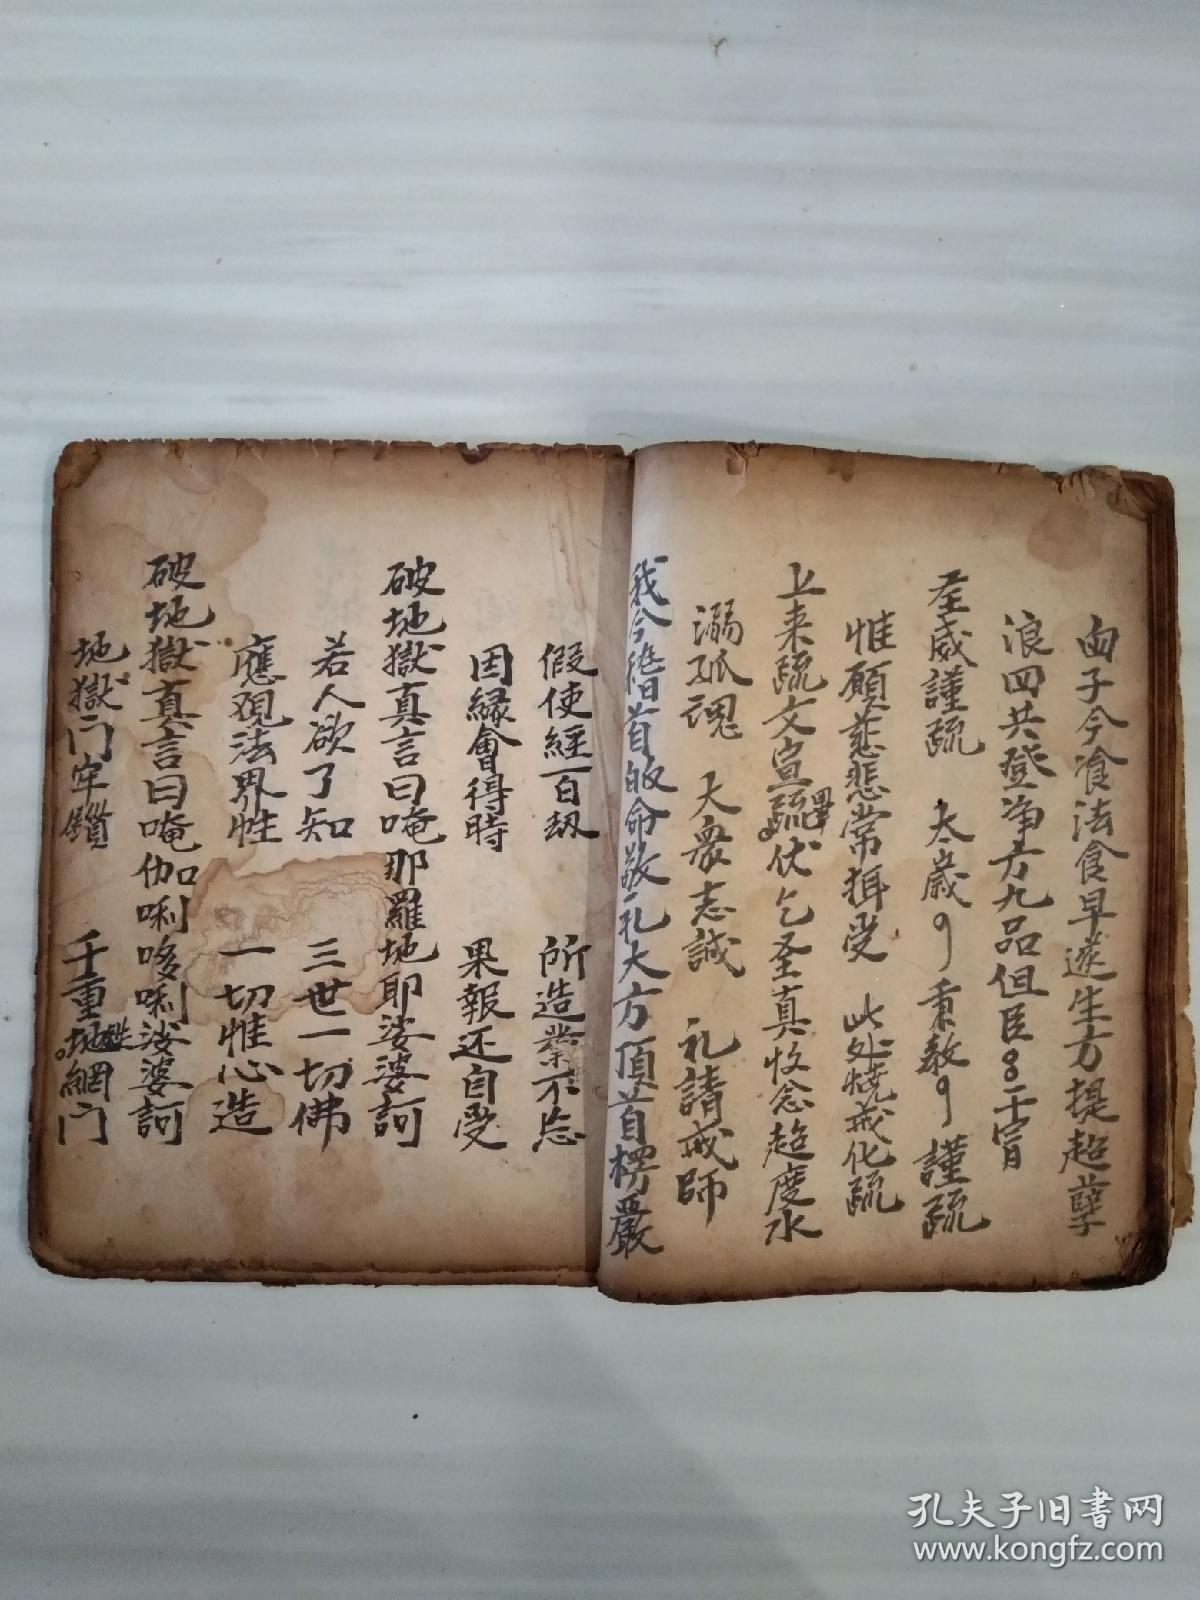 子今飡法食早送生方提超孽
浪四共登净方九品但臣 干冒
圣威謹疏 太歲 秉教 謹疏
惟願慈悲常揖受 此处燒戒化疏
上来疏文宣疏畢伏乞圣真收念超度水
溺孤魂 大衆志誠 礼請戒師
我今稽首皈命敬礼大方頂首楞嚴
假使經百劫 所造業不忘
因緣會得時 果報还自受
破地獄真言曰唵那羅地耶娑婆訶
若人欲了知 三世一切佛
應現法界性 一切惟心造
破地獄真言曰唵伽唎哆唎娑婆訶
地獄门牢鎖 千重地網门
孔夫子旧书网
www.kongfz.com